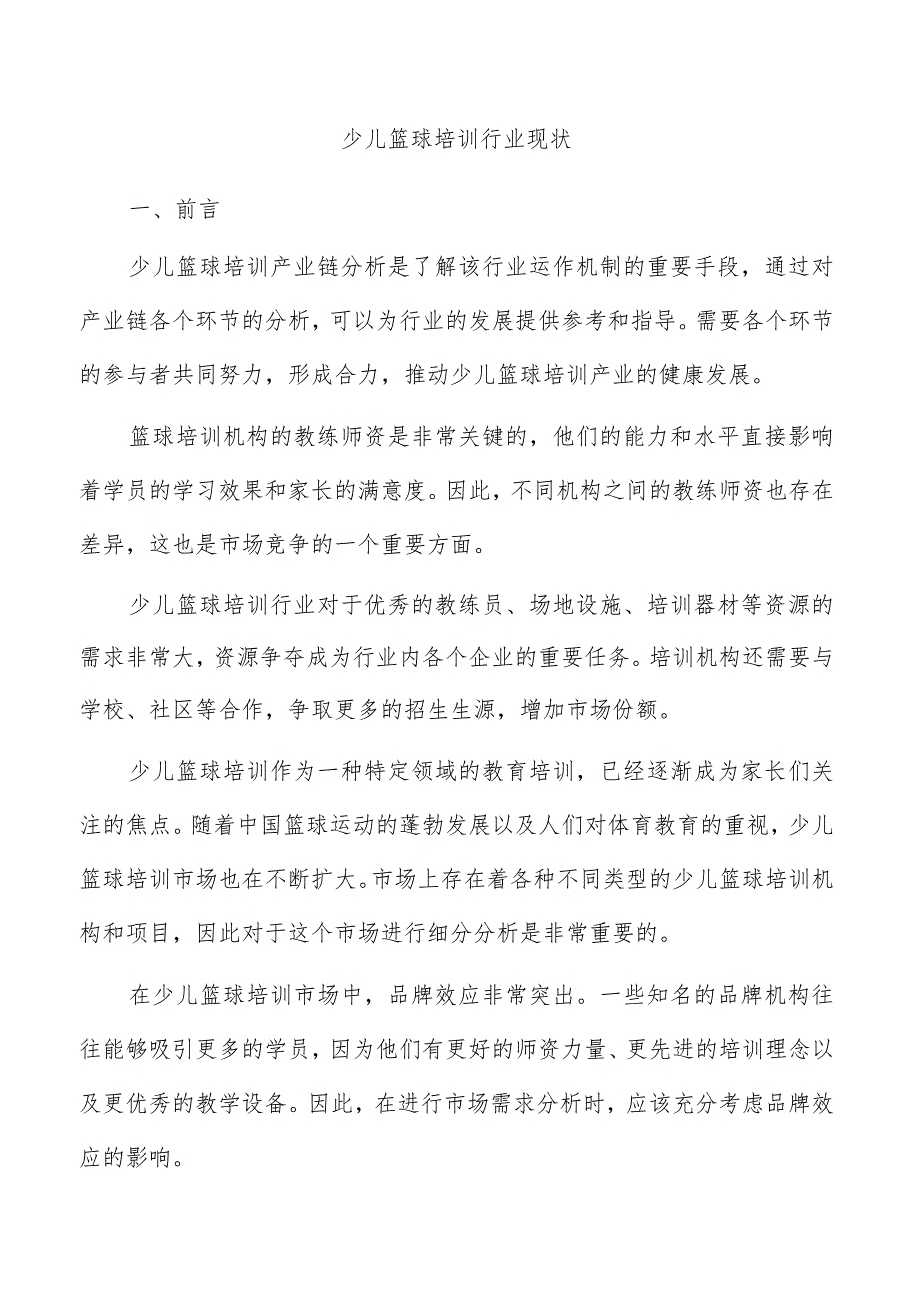 少儿篮球培训行业现状
一、前言
少儿篮球培训产业链分析是了解该行业运作机制的重要手段，通过对
产业链各个环节的分析，可以为行业的发展提供参考和指导。需要各个环节
的参与者共同努力，形成合力，推动少儿篮球培训产业的健康发展。
篮球培训机构的教练师资是非常关键的，他们的能力和水平直接影响
着学员的学习效果和家长的满意度。因此，不同机构之间的教练师资也存在
差异，这也是市场竞争的一个重要方面。
少儿篮球培训行业对于优秀的教练员、场地设施、培训器材等资源的
需求非常大，资源争夺成为行业内各个企业的重要任务。培训机构还需要与
学校、社区等合作，争取更多的招生生源，增加市场份额。
少儿篮球培训作为一种特定领域的教育培训，已经逐渐成为家长们关
注的焦点。随着中国篮球运动的蓬勃发展以及人们对体育教育的重视，少儿
篮球培训市场也在不断扩大。市场上存在着各种不同类型的少儿篮球培训机
构和项目，因此对于这个市场进行细分分析是非常重要的。
在少儿篮球培训市场中，品牌效应非常突出。一些知名的品牌机构往
往能够吸引更多的学员，因为他们有更好的师资力量、更先进的培训理念以
及更优秀的教学设备。因此，在进行市场需求分析时，应该充分考虑品牌效
应的影响。